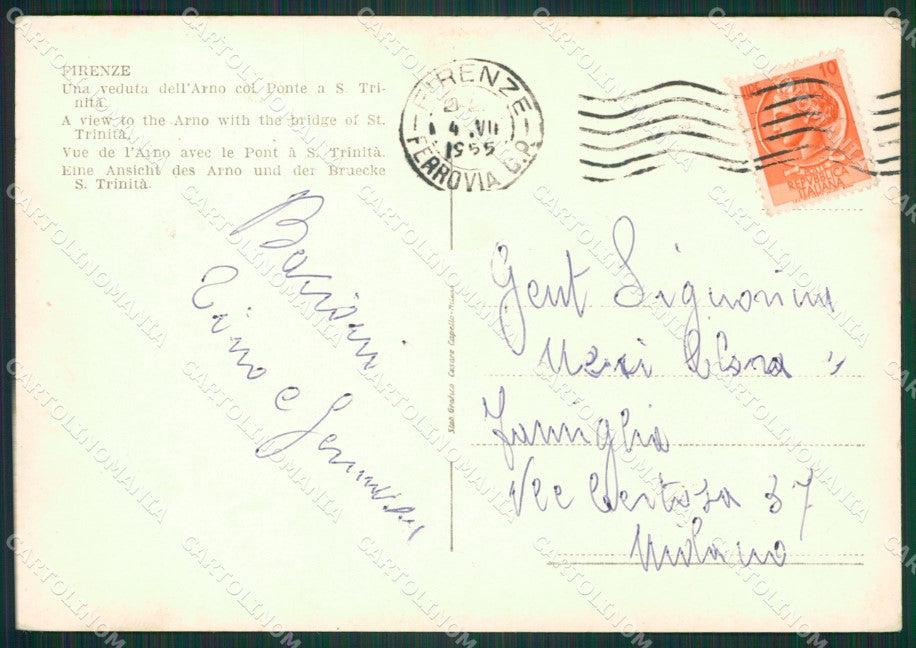 FIRENZE
Una veduta dell'Arno col Ponte a S. Tri-
nità.
A view to the Arno with the bridge of St.
Trinità.
Vue de l'Arno avec le Pont à S. Trinità.
Eine Ansicht des Arno und der Bruecke
S. Trinità.
FIRENZE
4 . VII
1955
FERROVIA C.P.
LIRE 10
REPUBBLICA
ITALIANA
Bacioni
e
Stab. Grafico Cesare Capello - Milano
Gent Signorina
Neri Clara e
famiglia
Via Certosa 37
Milano
CARTOLINOMANIA